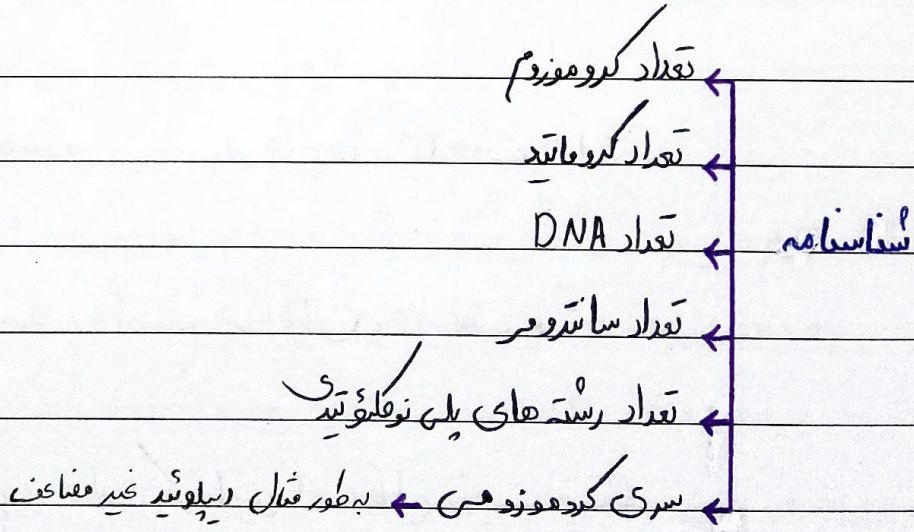 تعداد کروموزوم
تعداد کروماتید
شناسنامه
تعداد DNA
تعداد سانترومر
تعداد رشته های پلی نوکلئوتیدی
سری کروموزومی ← به طور مثال دیپلوئید غیر مضاعف